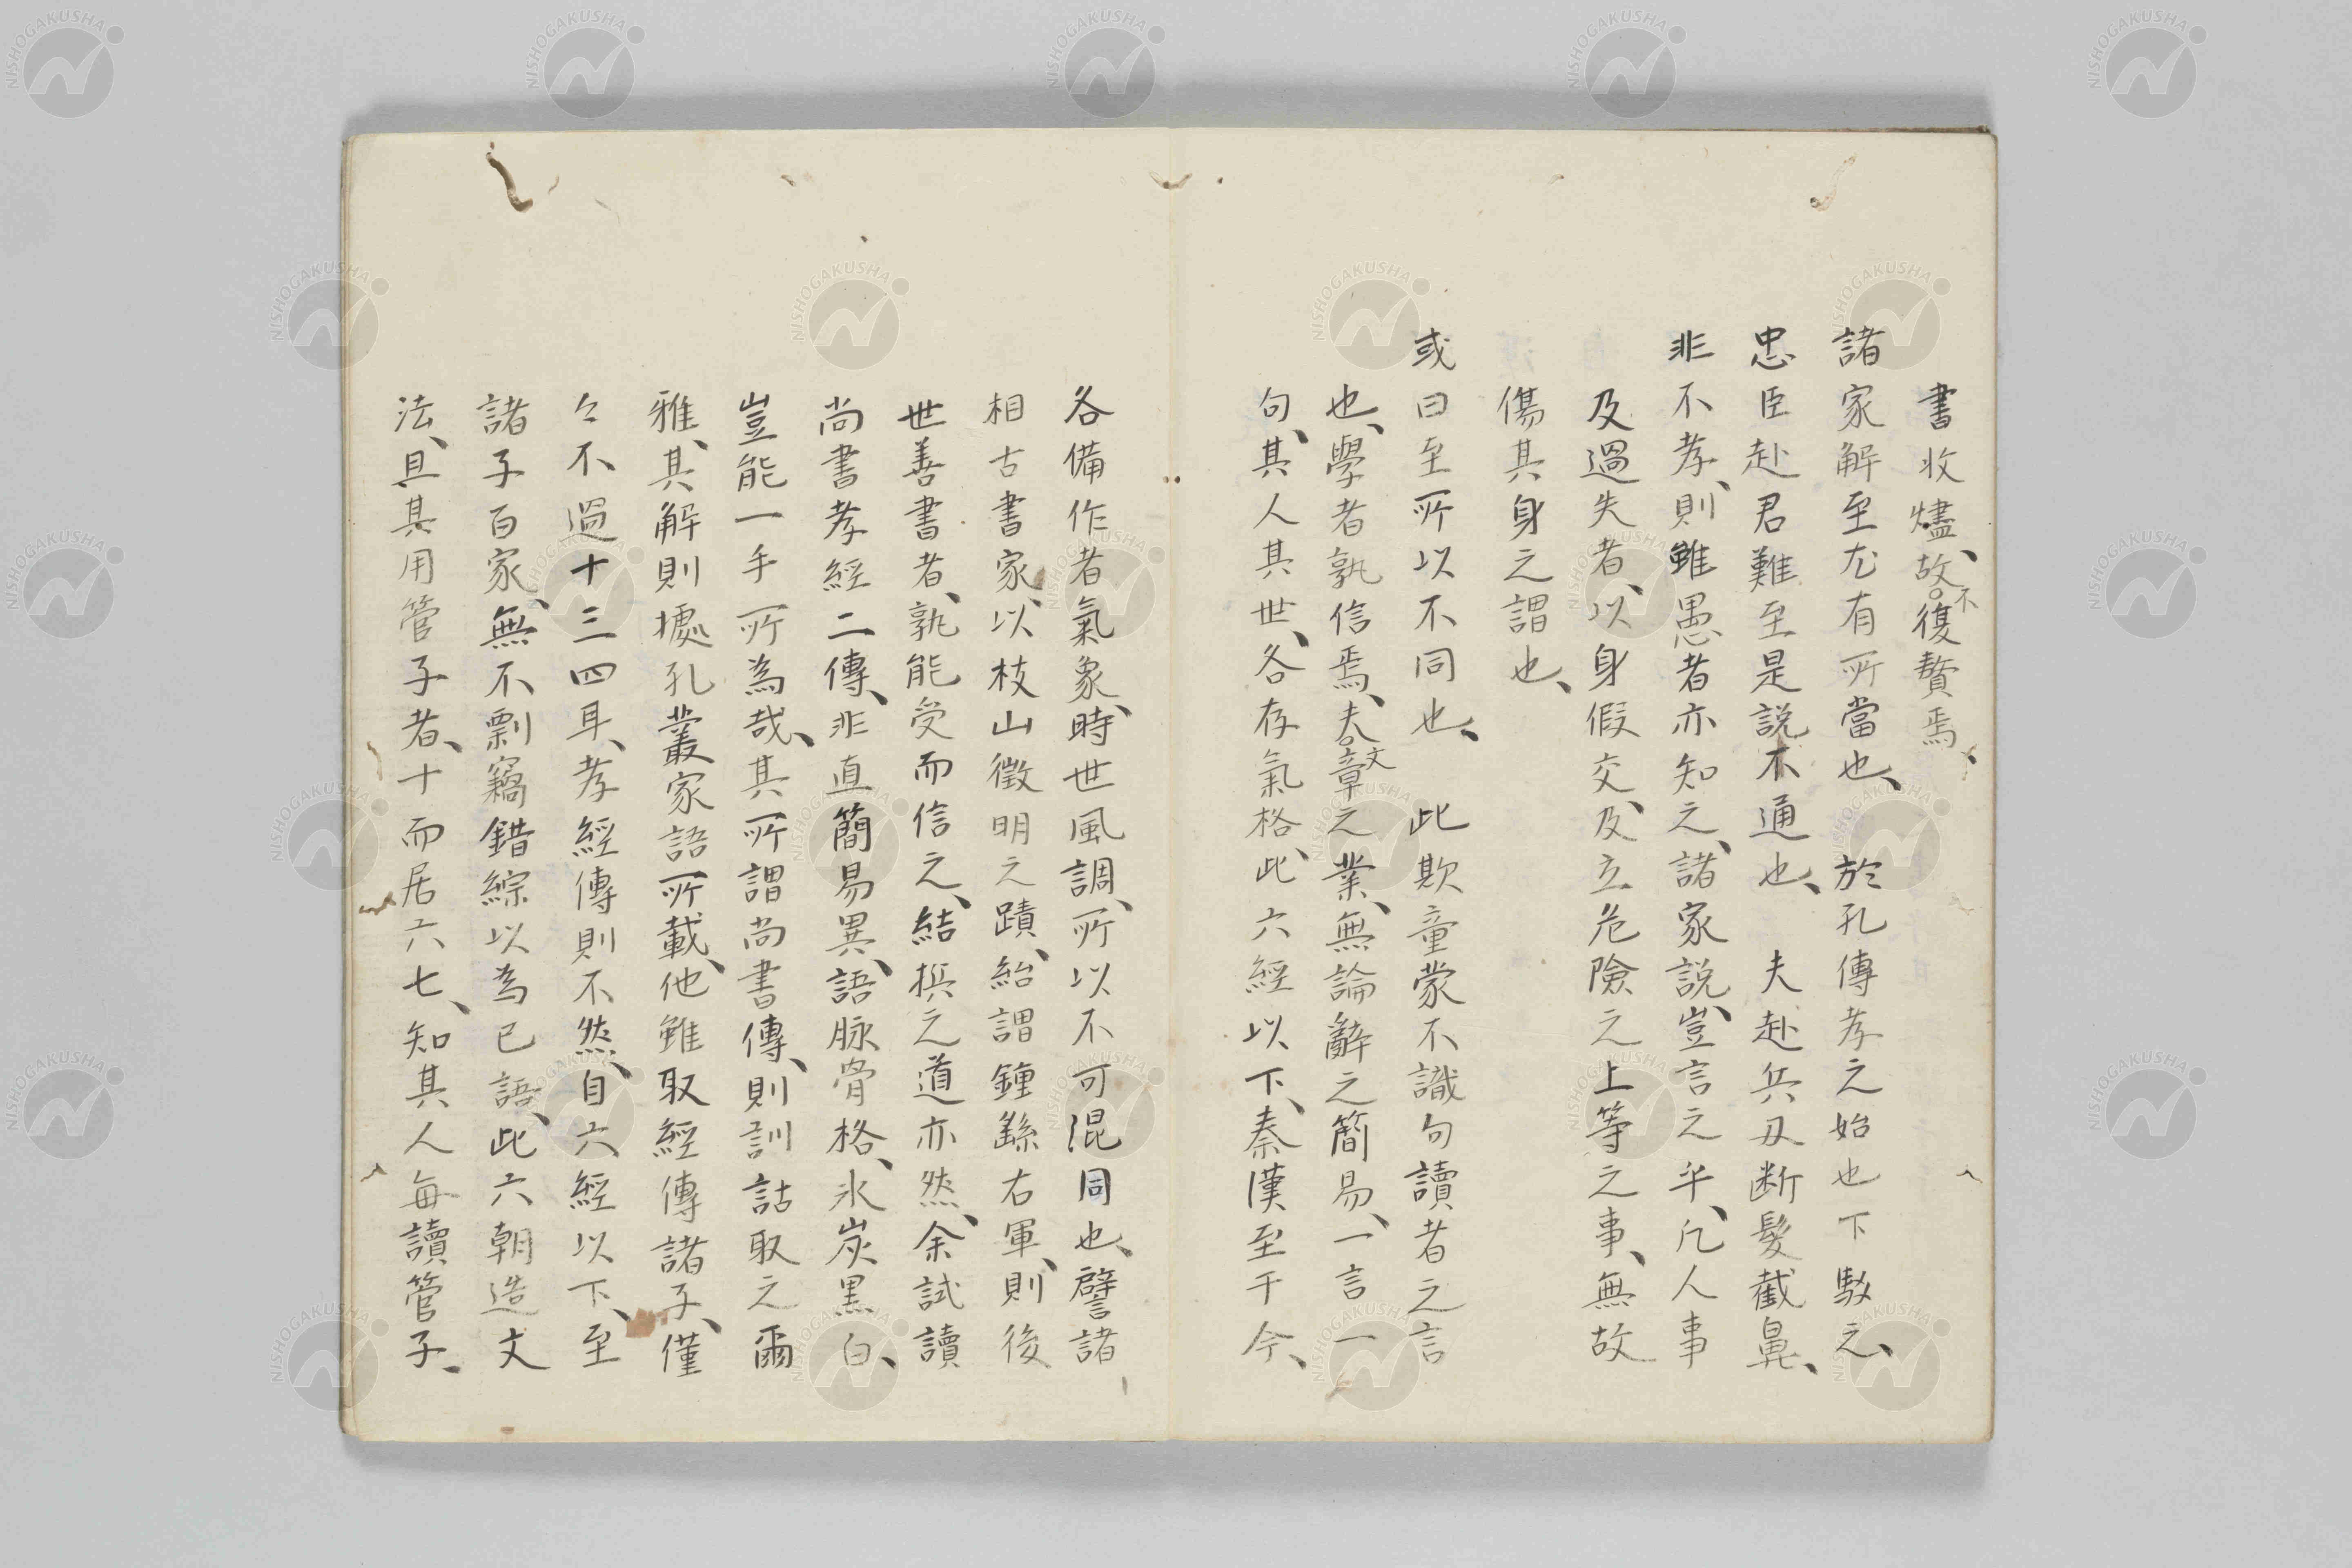 書收燼、故不復贅焉、
諸家解至尤有所當也、　於孔傳孝之始也下駁之、
忠臣赴君難至是說不通也、　夫赴兵刃断髮截鼻、
非不孝、則雖愚者亦知之、諸家說、豈言之乎、凡人事
及過失者、以身假交、及立危險之上等之事、無故
傷其身之謂也、
或曰至所以不同也、　此欺童蒙不識句讀者之言
也、學者孰信焉、夫文章之業、無論辭之簡易、一言一
句、其人其世、各存氣格、此六經以下、秦漢至于今、
各備作者氣象、時世風調、所以不可混同也、譬諸
相古書家、以枝山徵明之蹟、紿謂鍾繇右軍、則後
世善書者、孰能受而信之、結撰之道亦然、余試讀
尚書孝經二傳、非直簡易異、語脉骨格、氷炭黑白、
豈能一手所為哉、其所謂尚書傳、則訓詁取之爾
雅、其解則據孔叢家語所載、他雖取經傳諸子、僅
々不過十三四耳、孝經傳則不然、自六經以下、至
諸子百家、無不剽竊錯綜以為已語、此六朝造文
法、且其用管子者、十而居六七、知其人每讀管子、
NISHOGAKUSHA